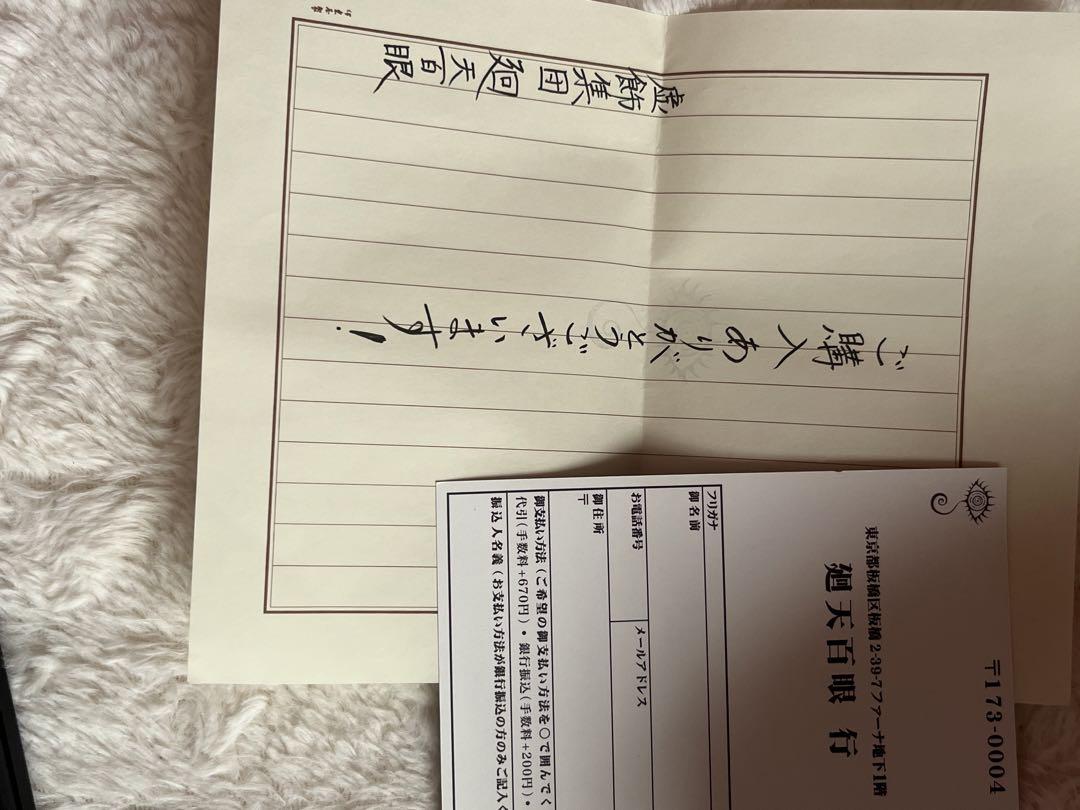 ご購入ありがとうございます!
虚飾集団廻天百眼
〒173-0004
東京都板橋区板橋 2-39-7 ファーナ地下1階
廻天百眼 行
フリガナ
御名前
お電話番号
メールアドレス
御住所
〒
御支払い方法(ご希望の御支払い方法を○で囲んでく
代引(手数料+670円)・銀行振込(手数料+200円)・
振込人名義(お支払い方法が銀行振込の方のみご記入く